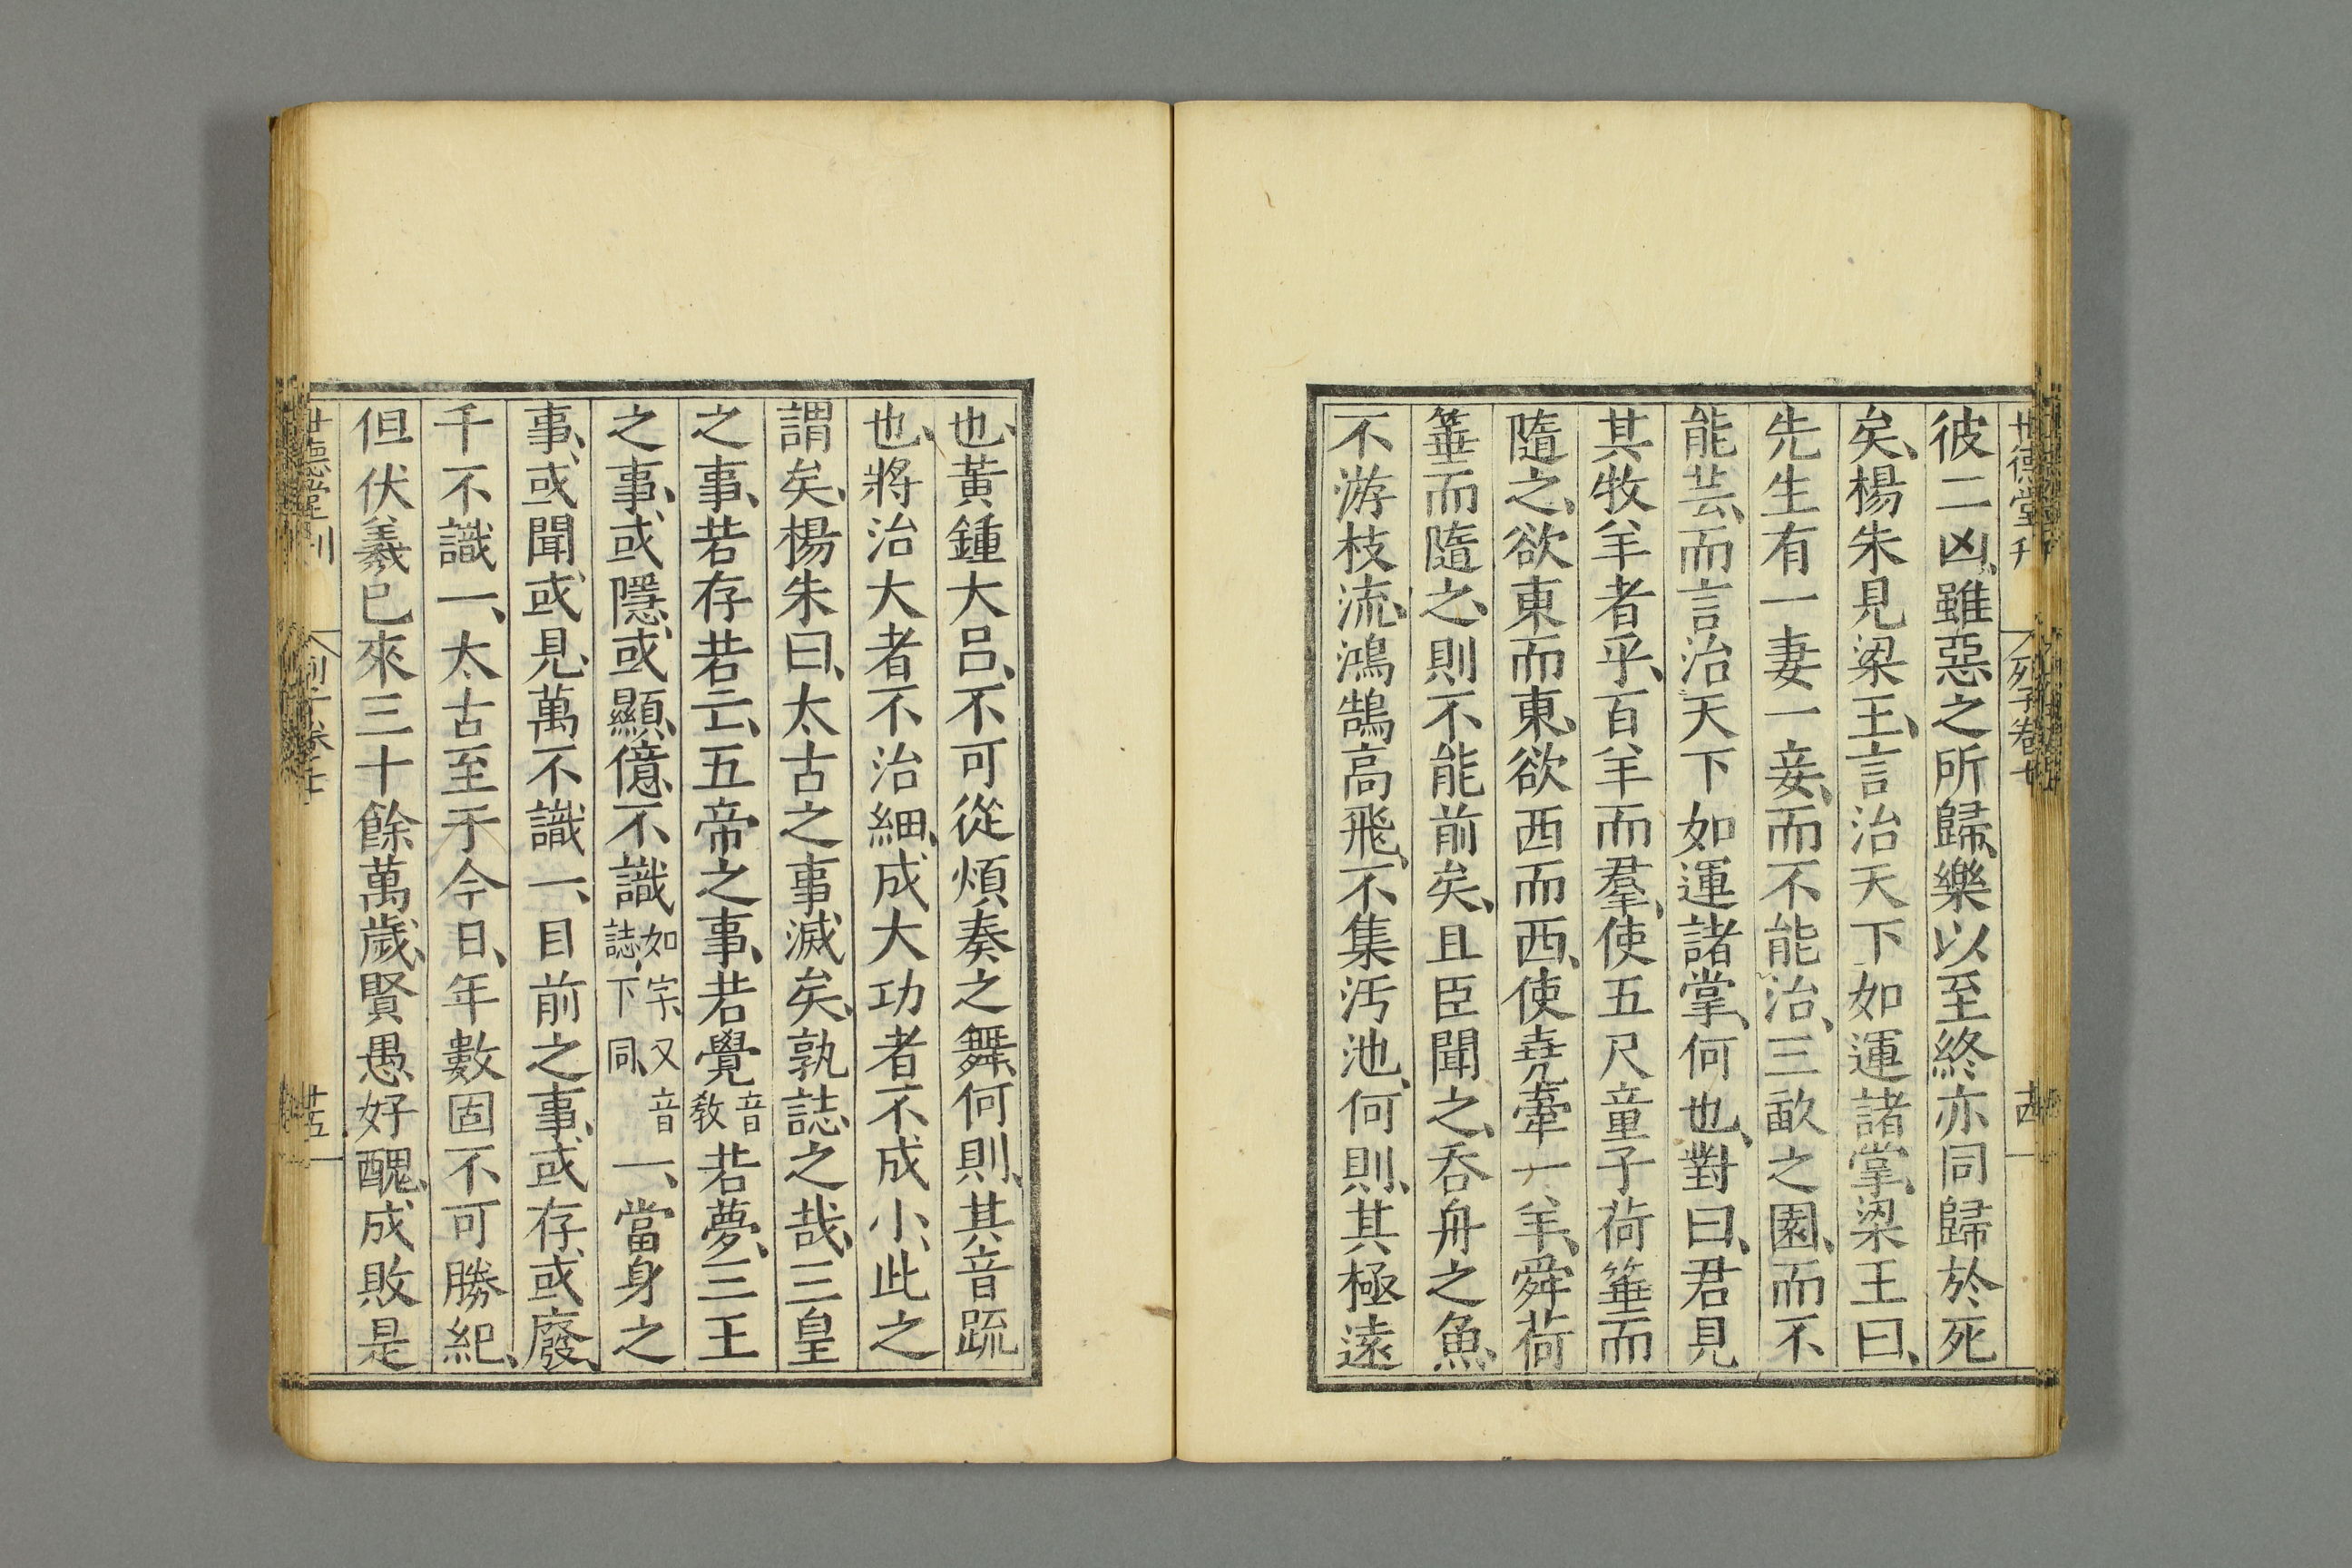 世德堂刊
列子卷七
彼二凶、雖惡之所歸、樂以至終亦同歸於死
矣、楊朱見梁王、言治天下如運諸掌、梁王曰、
先生有一妻一妾、而不能治、三畝之園、而不
能芸、而言治天下如運諸掌、何也、對曰、君見
其牧羊者乎、百羊而羣、使五尺童子荷箠而
隨之、欲東而東、欲西而西、使堯牽一羊、舜荷
箠而隨之、則不能前矣、且臣聞之、吞舟之魚、
不游枝流、鴻鵠高飛、不集汚池、何則、其極遠
也、黃鍾大呂、不可從煩奏之舞、何則、其音疏
也、將治大者不治細、成大功者不成小、此之
謂矣、楊朱曰、太古之事滅矣、孰誌之哉、三皇
之事、若存若亡、五帝之事、若覺音教若夢、三王
之事、或隱、或顯、億不識如字、又音誌、下同、一、當身之
事、或聞、或見、萬不識一、目前之事、或存、或廢、
千不識一、太古至于今日、年數固不可勝紀、
但伏羲已來三十餘萬歲、賢愚好醜、成敗是
世德堂刊
列子卷七
廿五